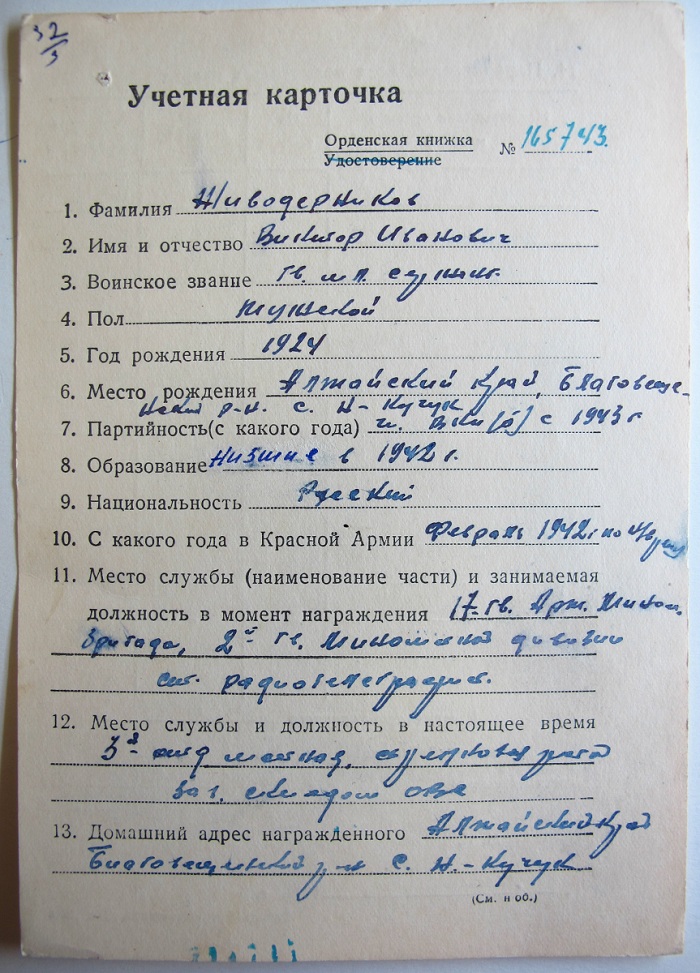 32/3
Учетная карточка
Орденская книжка № 165743.
Удостоверение
1. Фамилия Живодерников
2. Имя и отчество Виктор Иванович
3. Воинское звание гв. мл. сержант.
4. Пол мужской
5. Год рождения 1924
6. Место рождения Алтайский край, Благовеще-
нский р-н. с. Н-Кучук
7. Партийность(с какого года) ч. ВКП(б) с 1943 г
8. Образование Низшие в 1942 г.
9. Национальность Русский
10. С какого года в Красной Армии Февраль 1942 г по
11. Место службы (наименование части) и занимаемая
должность в момент награждения 17-гв. Арт. Мином.
Бригада, 2й гв. Минометной дивизии
ст. радиотелеграфист.
12. Место службы и должность в настоящее время
3я рота
заг. складом ОВС
13. Домашний адрес награжденного Алтайский край
Благовещенский р-н с. Н.-Кучук
(См. н об.)